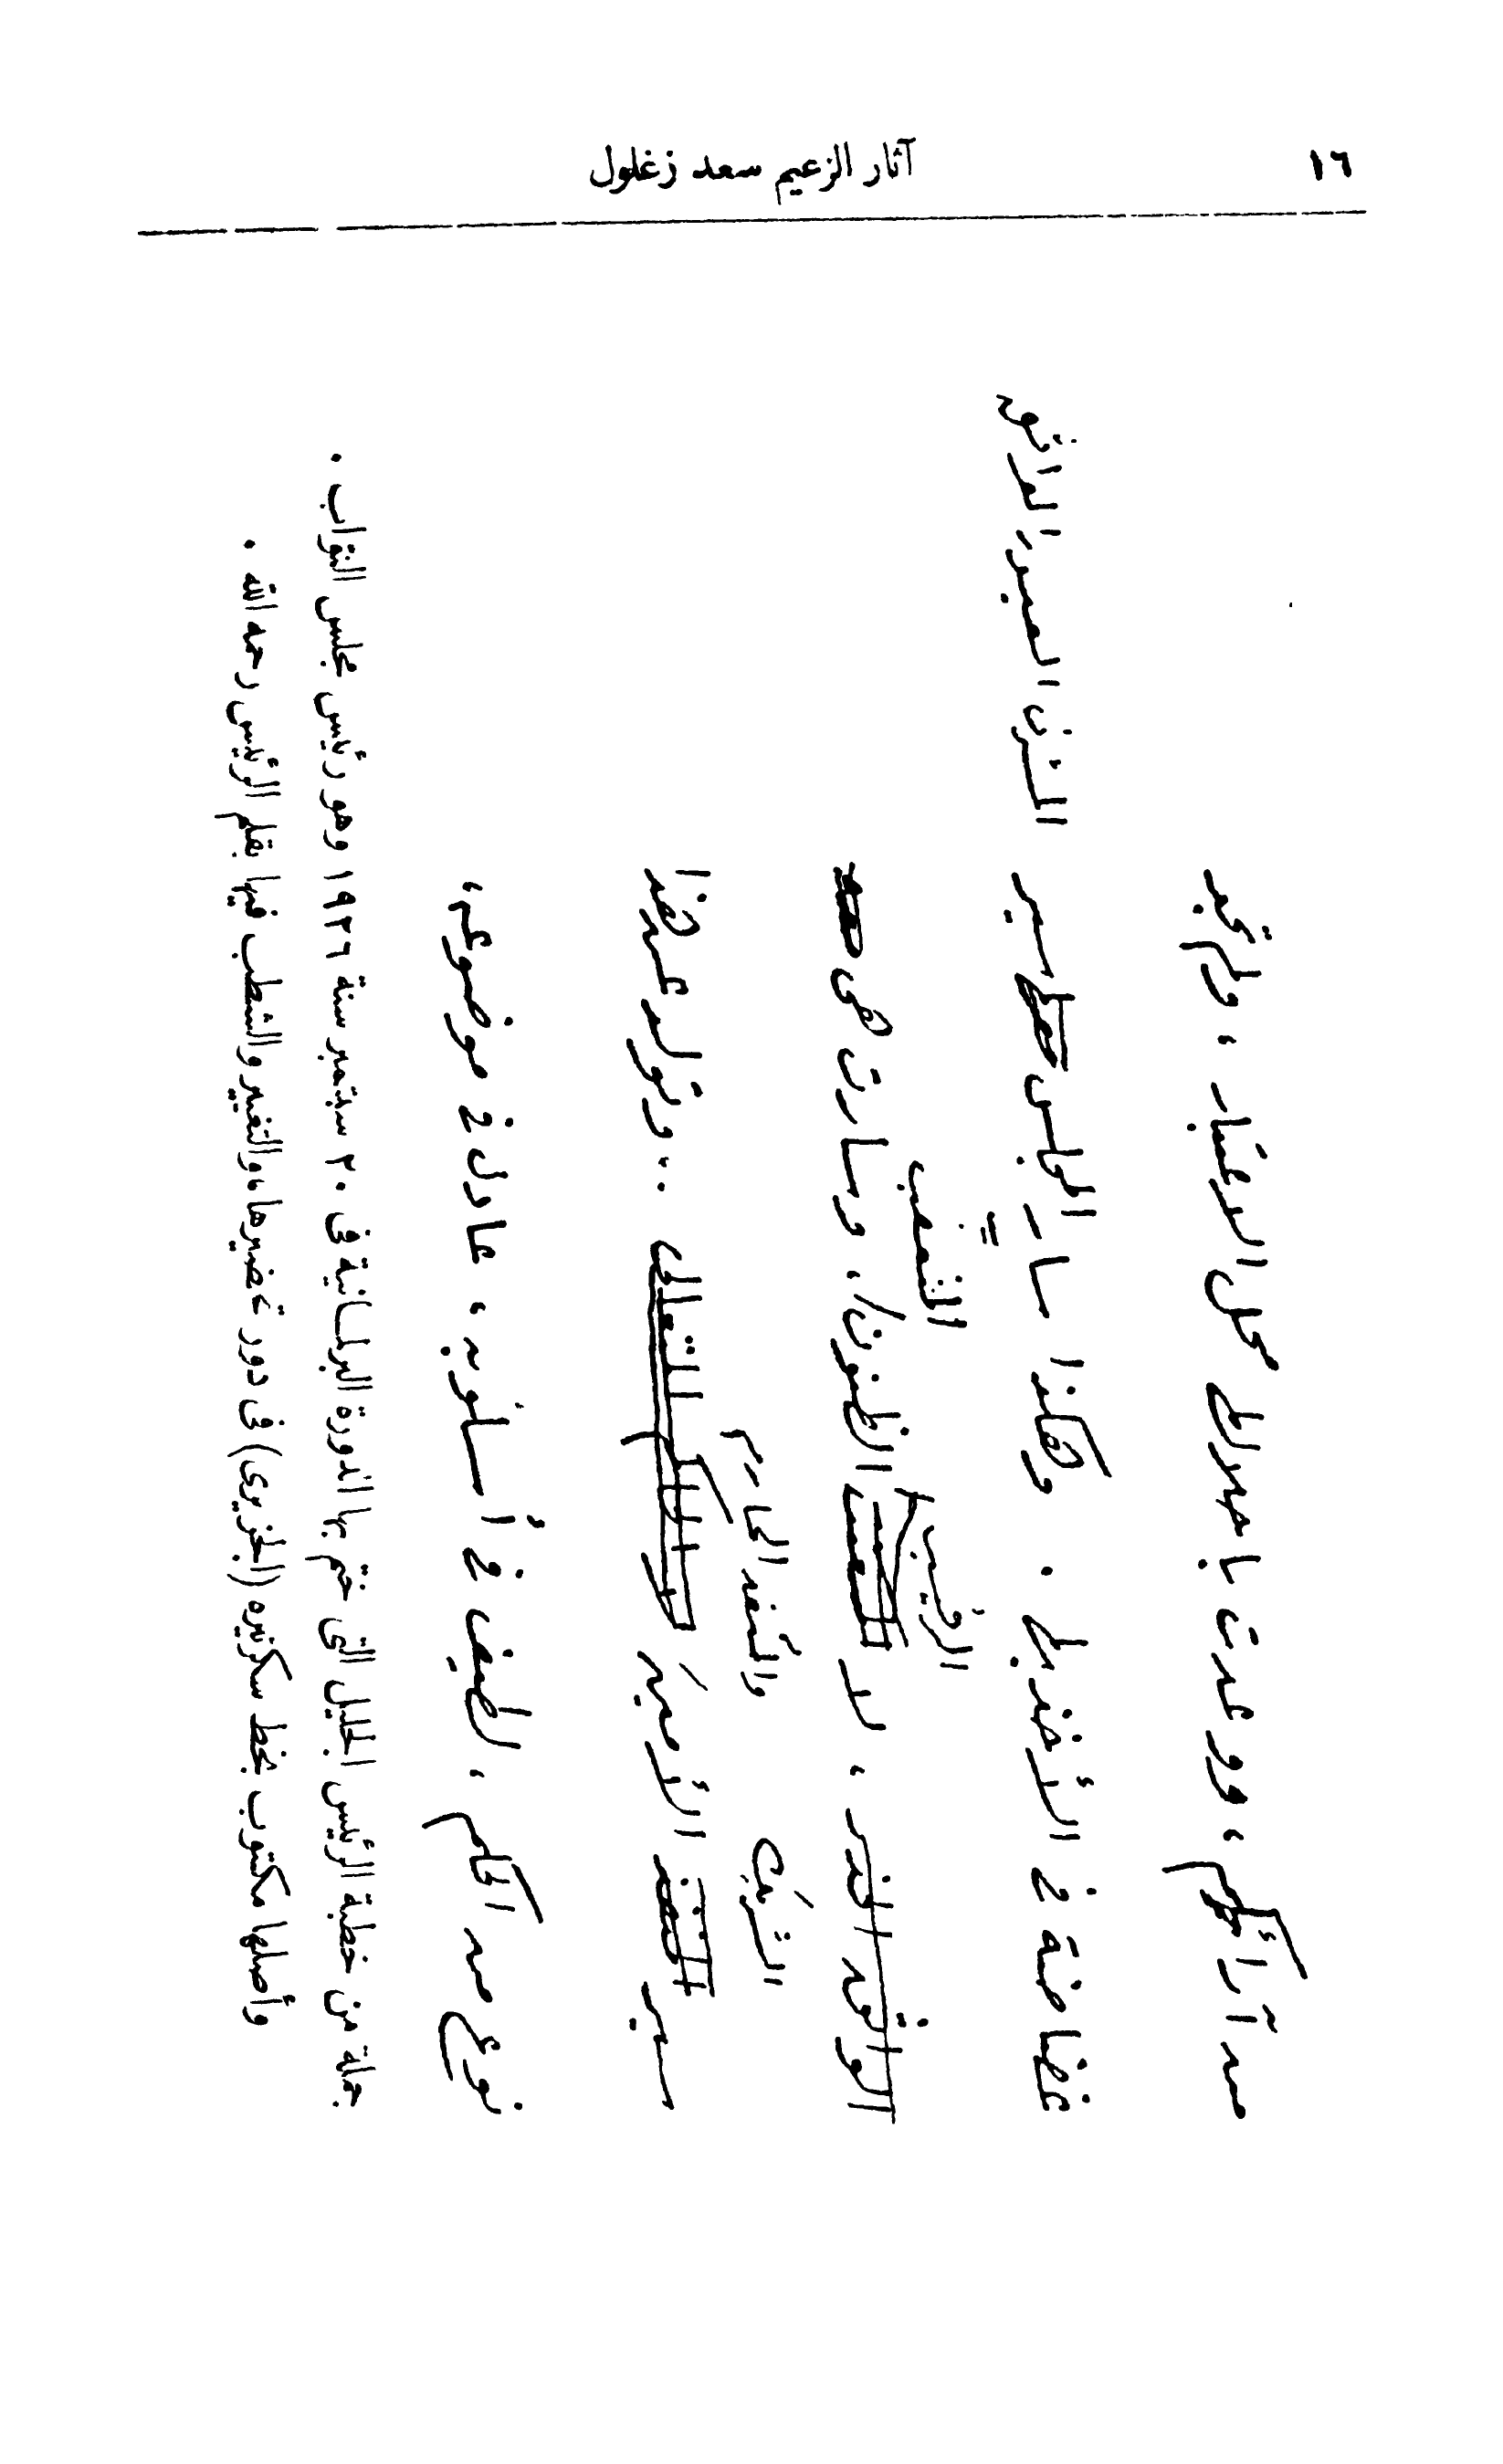 ١٦
آثار الزعيم سعد زغلول
من آرائكم ، ووعدت بإحلالها محل الاعتبار ، ولم تجد
غضاضة فى الأخذ بها . وهكذا سار المجلس سير المتزن البصير الواثق
الواثق الحذر ، لا الرقيب المتعقب الظنون ، وسارت هى
سير الشريك الأمين والمنفذ الحازم .. وتولد عن هذا
نوع من الحكم ، لطيف فى أسلوبه ، عادل فى موضوعه ،
جملة من خطبة الرئيس الجليل التى ختم بها الدورة البرلمانية فى ٢٠ سبتمبر سنة ١٩٢٦ وهو رئيس مجلس النواب .
وأصلها مكتوب بخط سكرتيره (الجزيرى) فى دور تحضيرها ، والتغيير والشطب فيها بقلم الرئيس رحمه الله .